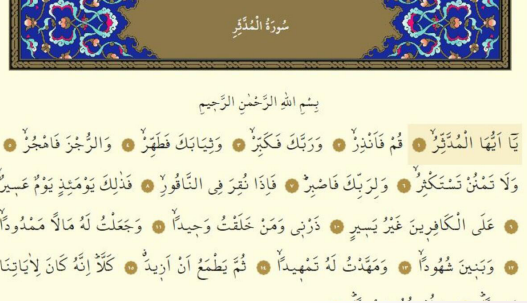 سُورَةُ الْمُدَّثِّرِ
بِسْمِ اللهِ الرَّحْمٰنِ الرَّحٖيمِ
يَٓا اَيُّهَا الْمُدَّثِّرُۙ ١ قُمْ فَاَنْذِرْۙ ٢ وَرَبَّكَ فَكَبِّرْۙ ٣ وَثِيَابَكَ فَطَهِّرْۙ ٤ وَالرُّجْزَ فَاهْجُرْۙ ٥
وَلَا تَمْنُنْ تَسْتَكْثِرُۙ ٦ وَلِرَبِّكَ فَاصْبِرْۜ ٧ فَاِذَا نُقِرَ فِى النَّاقُورِۙ ٨ فَذٰلِكَ يَوْمَئِذٍ يَوْمٌ عَسٖيرٌۙ
٩ عَلَى الْكَافِرٖينَ غَيْرُ يَسٖيرٍ ١٠ ذَرْنٖى وَمَنْ خَلَقْتُ وَحٖيدًاۙ ١١ وَجَعَلْتُ لَهُ مَالًا مَمْدُودًاۙ
١٢ وَبَنٖينَ شُهُودًاۙ ١٣ وَمَهَّدْتُ لَهُ تَمْهٖيدًاۙ ١٤ ثُمَّ يَطْمَعُ اَنْ اَزٖيدَۙ ١٥ كَلَّاۜ اِنَّهُ كَانَ لِاٰيَاتِنَا